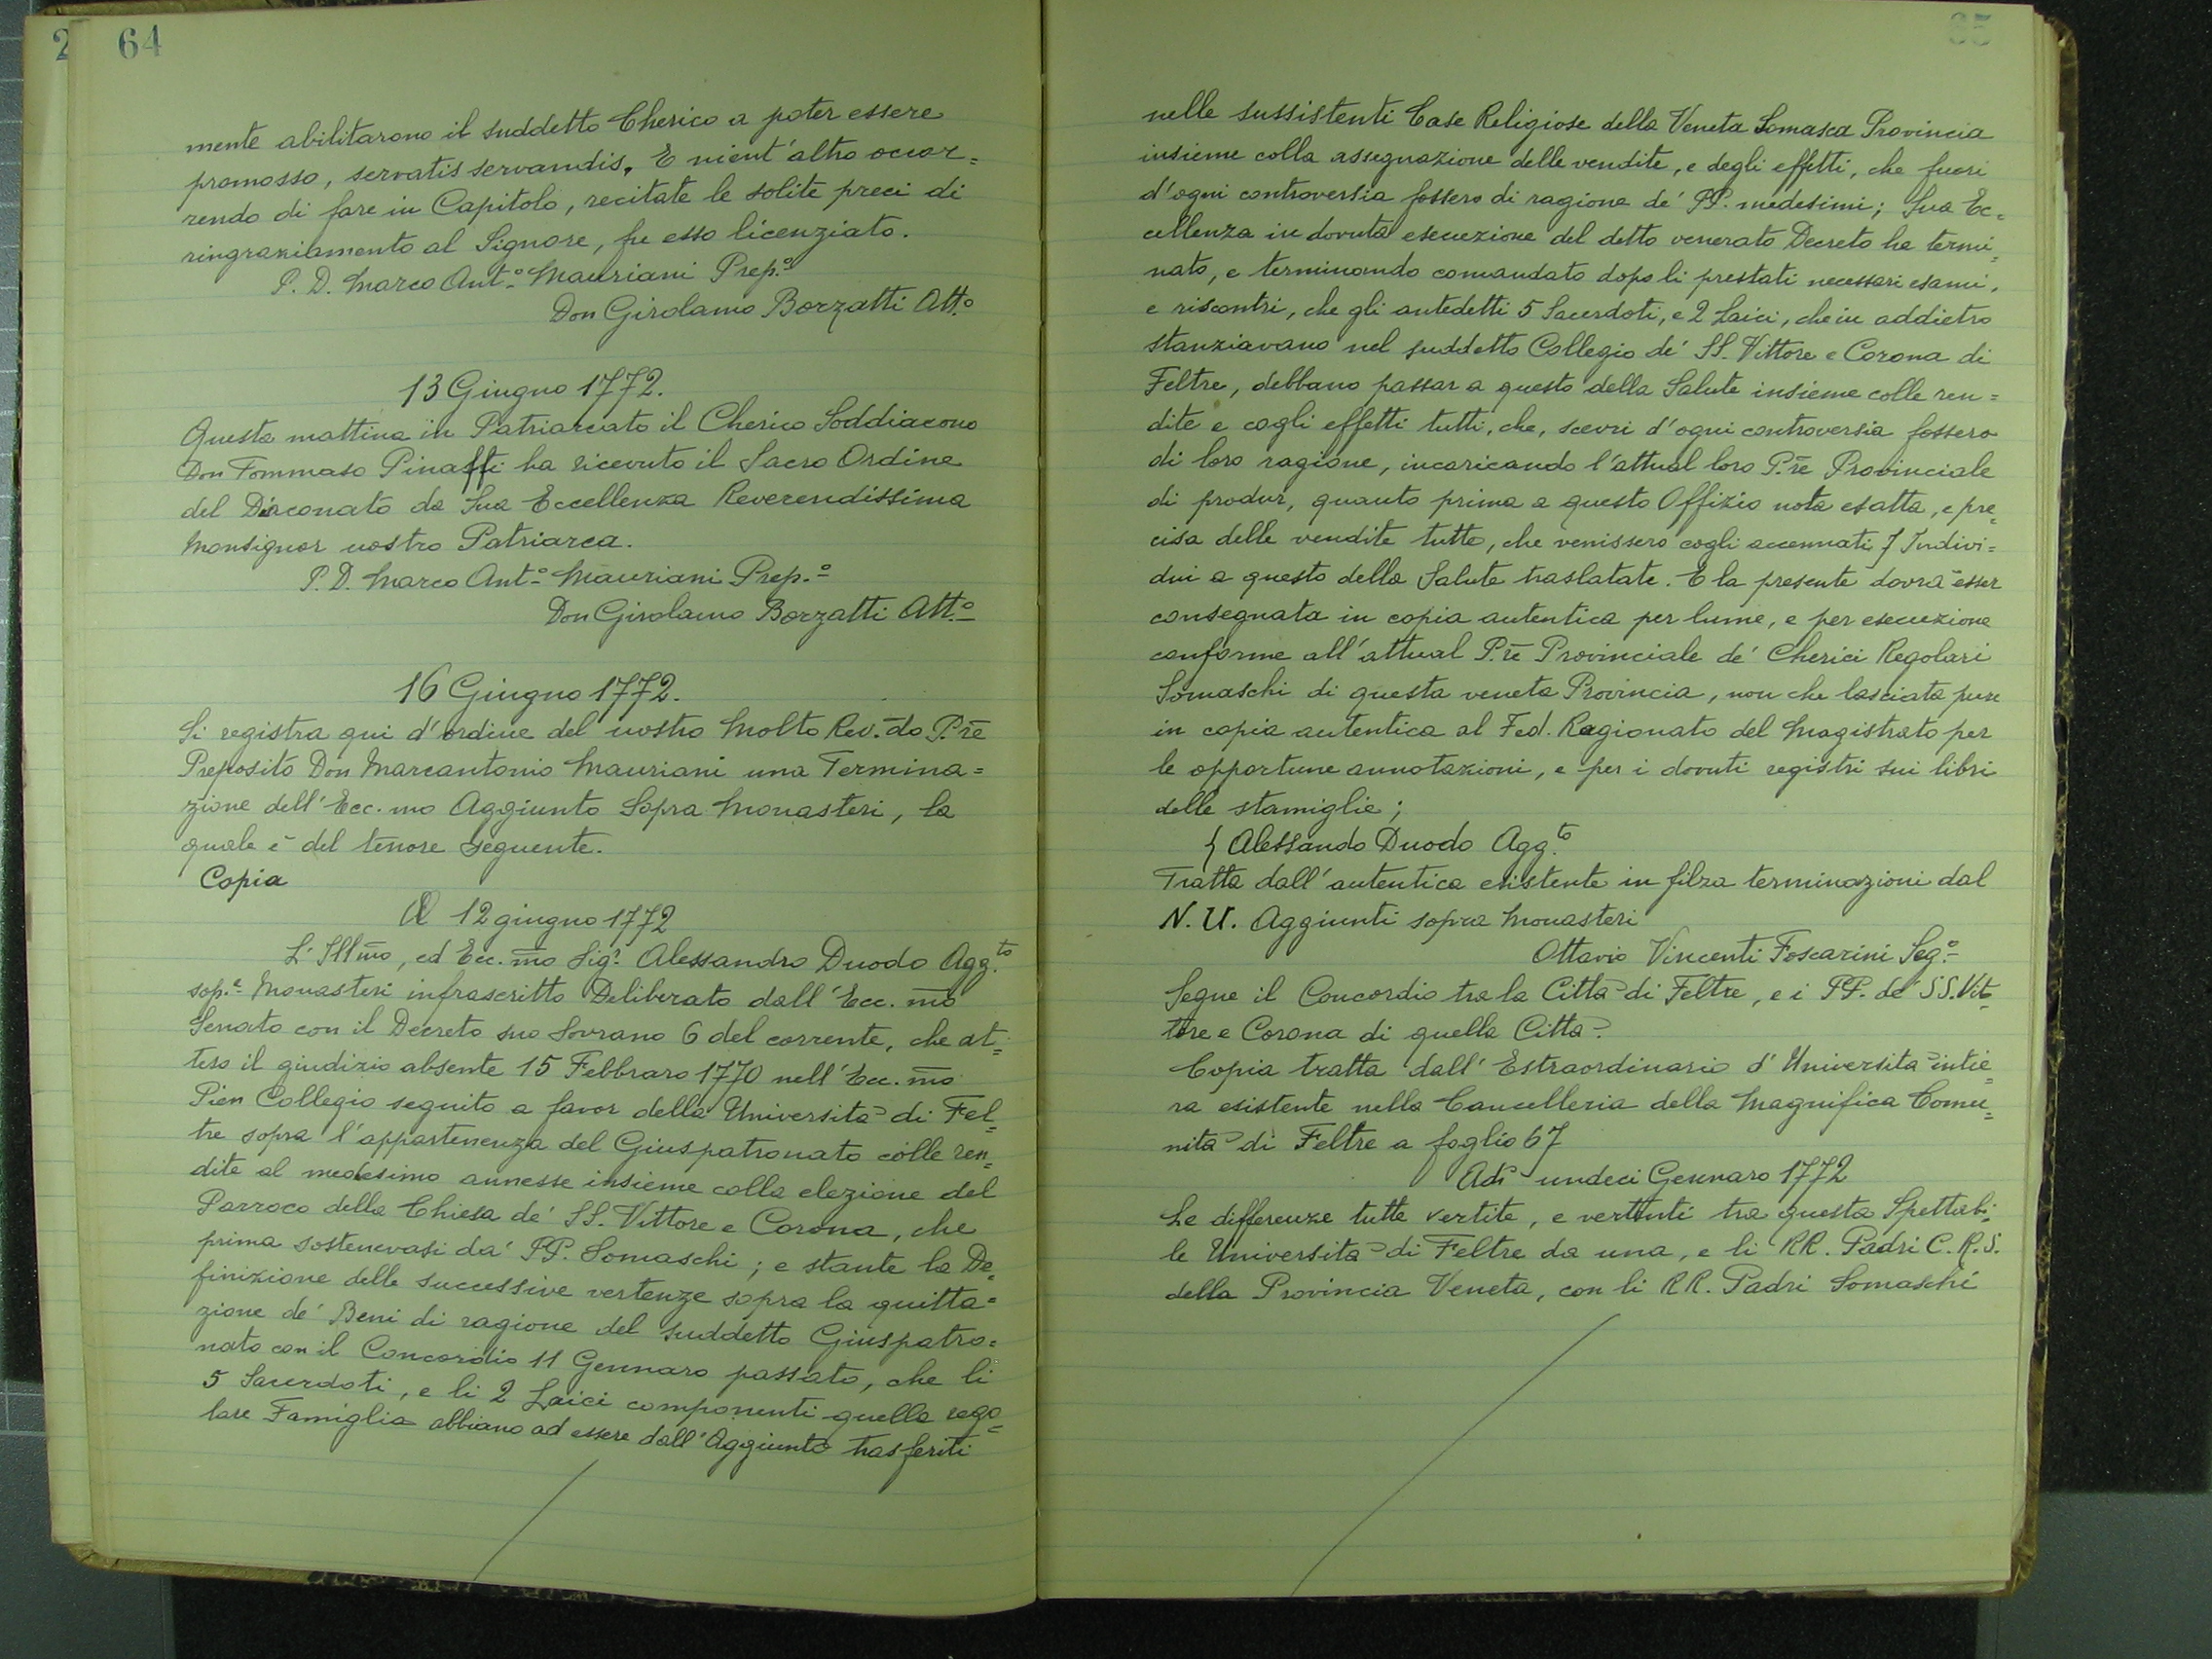 2
64
mente abilitarono il suddetto Cherico a poter essere
promosso, servatis servandis. E nient'altro occor=
rendo di fare in Capitolo, recitate le solite preci di
ringraziamento al Signore, fu esso licenziato.
P. D. Marco Ant.º Mauriani Prep.º
Don Girolamo Borzatti Att.º
13 Giugno 1772.
Questa mattina in Patriarcato il Cherico Soddiacono
Don Tommaso Pinaffi ha ricevuto il Sacro Ordine
del Diaconato da Sua Eccellenza Reverendissima
Monsignor nostro Patriarca.
P. D. Marco Ant.º Mauriani Prep.º
Don Girolamo Borzatti Att.º
16 Giugno 1772.
Si registra qui d'ordine del nostro Molto Rev.do P.re
Preposito Don Marcantonio Mauriani una Termina=
zione dell'Ecc.mo Aggiunto Sopra Monasteri, la
quale è del tenore seguente.
Copia
12 giugno 1772
L'Illmo, ed Ecc.mo Sig.r Alessandro Duodo Agg.to
sop.a Monasteri infrascritto Deliberato dall'Ecc.mo
Senato con il Decreto suo Sovrano 6 del corrente, che at=
teso il giudizio absente 15 Febbraro 1770 nell'Ecc.mo
Pien Collegio seguito a favor della Università di Fel=
tre sopra l'appartenenza del Giuspatronato colle ren=
dite al medesimo annesse insieme colla elezione del
Parroco della Chiesa de' SS. Vittore e Corona, che
prima sostenevasi da' PP. Somaschi; e stante la De=
finizione delle successive vertenze sopra la quitta=
zione de' Beni di ragione del suddetto Giuspatro=
nato con il Concordio 11 Gennaro passato, che li
5 Sacerdoti, e li 2 Laici componenti quella rego=
lare Famiglia abbiano ad essere dall'Aggiunto trasferiti
65
nelle sussistenti Case Religiose della Veneta Somasca Provincia
insieme colla assegnazione delle vendite, e degli effetti, che fuori
d'ogni controversia fossero di ragione de' PP. medesimi; Sua Ec=
cellenza in dovuta esecuzione del detto venerato Decreto ha termi=
nato, e terminando comandato dopo li prestati necessari esami,
e riscontri, che gli antedetti 5 Sacerdoti, e 2 Laici, che in addietro
stanziavano nel suddetto Collegio de' SS. Vittore e Corona di
Feltre, debbano passar a questo della Salute insieme colle ren=
dite e cogli effetti tutti, che, scevri d'ogni controversia fossero
di loro ragione, incaricando l'attual loro P.re Provinciale
di produr, quanto prima a questo Offizio nota esatta, e pre=
cisa delle vendite tutte, che venissero cogli accennati 7 Indivi=
dui a questo della Salute traslatate. E la presente dovrà esser
consegnata in copia autentica per lume, e per esecuzione
conforme all'attual P.re Provinciale de' Cherici Regolari
Somaschi di questa veneta Provincia, non che lasciata pure
in copia autentica al Fed. Ragionato del Magistrato per
le opportune annotazioni, e per i dovuti registri sui libri
delle stamiglie;
{ Alessando Duodo Agg.to
Tratta dall'autentica esistente in filza terminazioni dal
N. U. Aggiunti sopra Monasteri
Ottavio Vincenti Foscarini Seg.º
Segue il Concordio tra la Città di Feltre, e i PP. de' SS. Vit=
tore e Corona di quella Città.
Copia tratta dall'Estraordinario d'Università intie=
ra esistente nella Cancelleria della Magnifica Comu=
nità di Feltre a foglio 67
Adì undeci Gennaro 1772
Le differenze tutte vertite, e vertenti tra questa Spettabi=
le Università di Feltre da una, e li RR. Padri C. R. S.
della Provincia Veneta, con li RR. Padri Somaschi